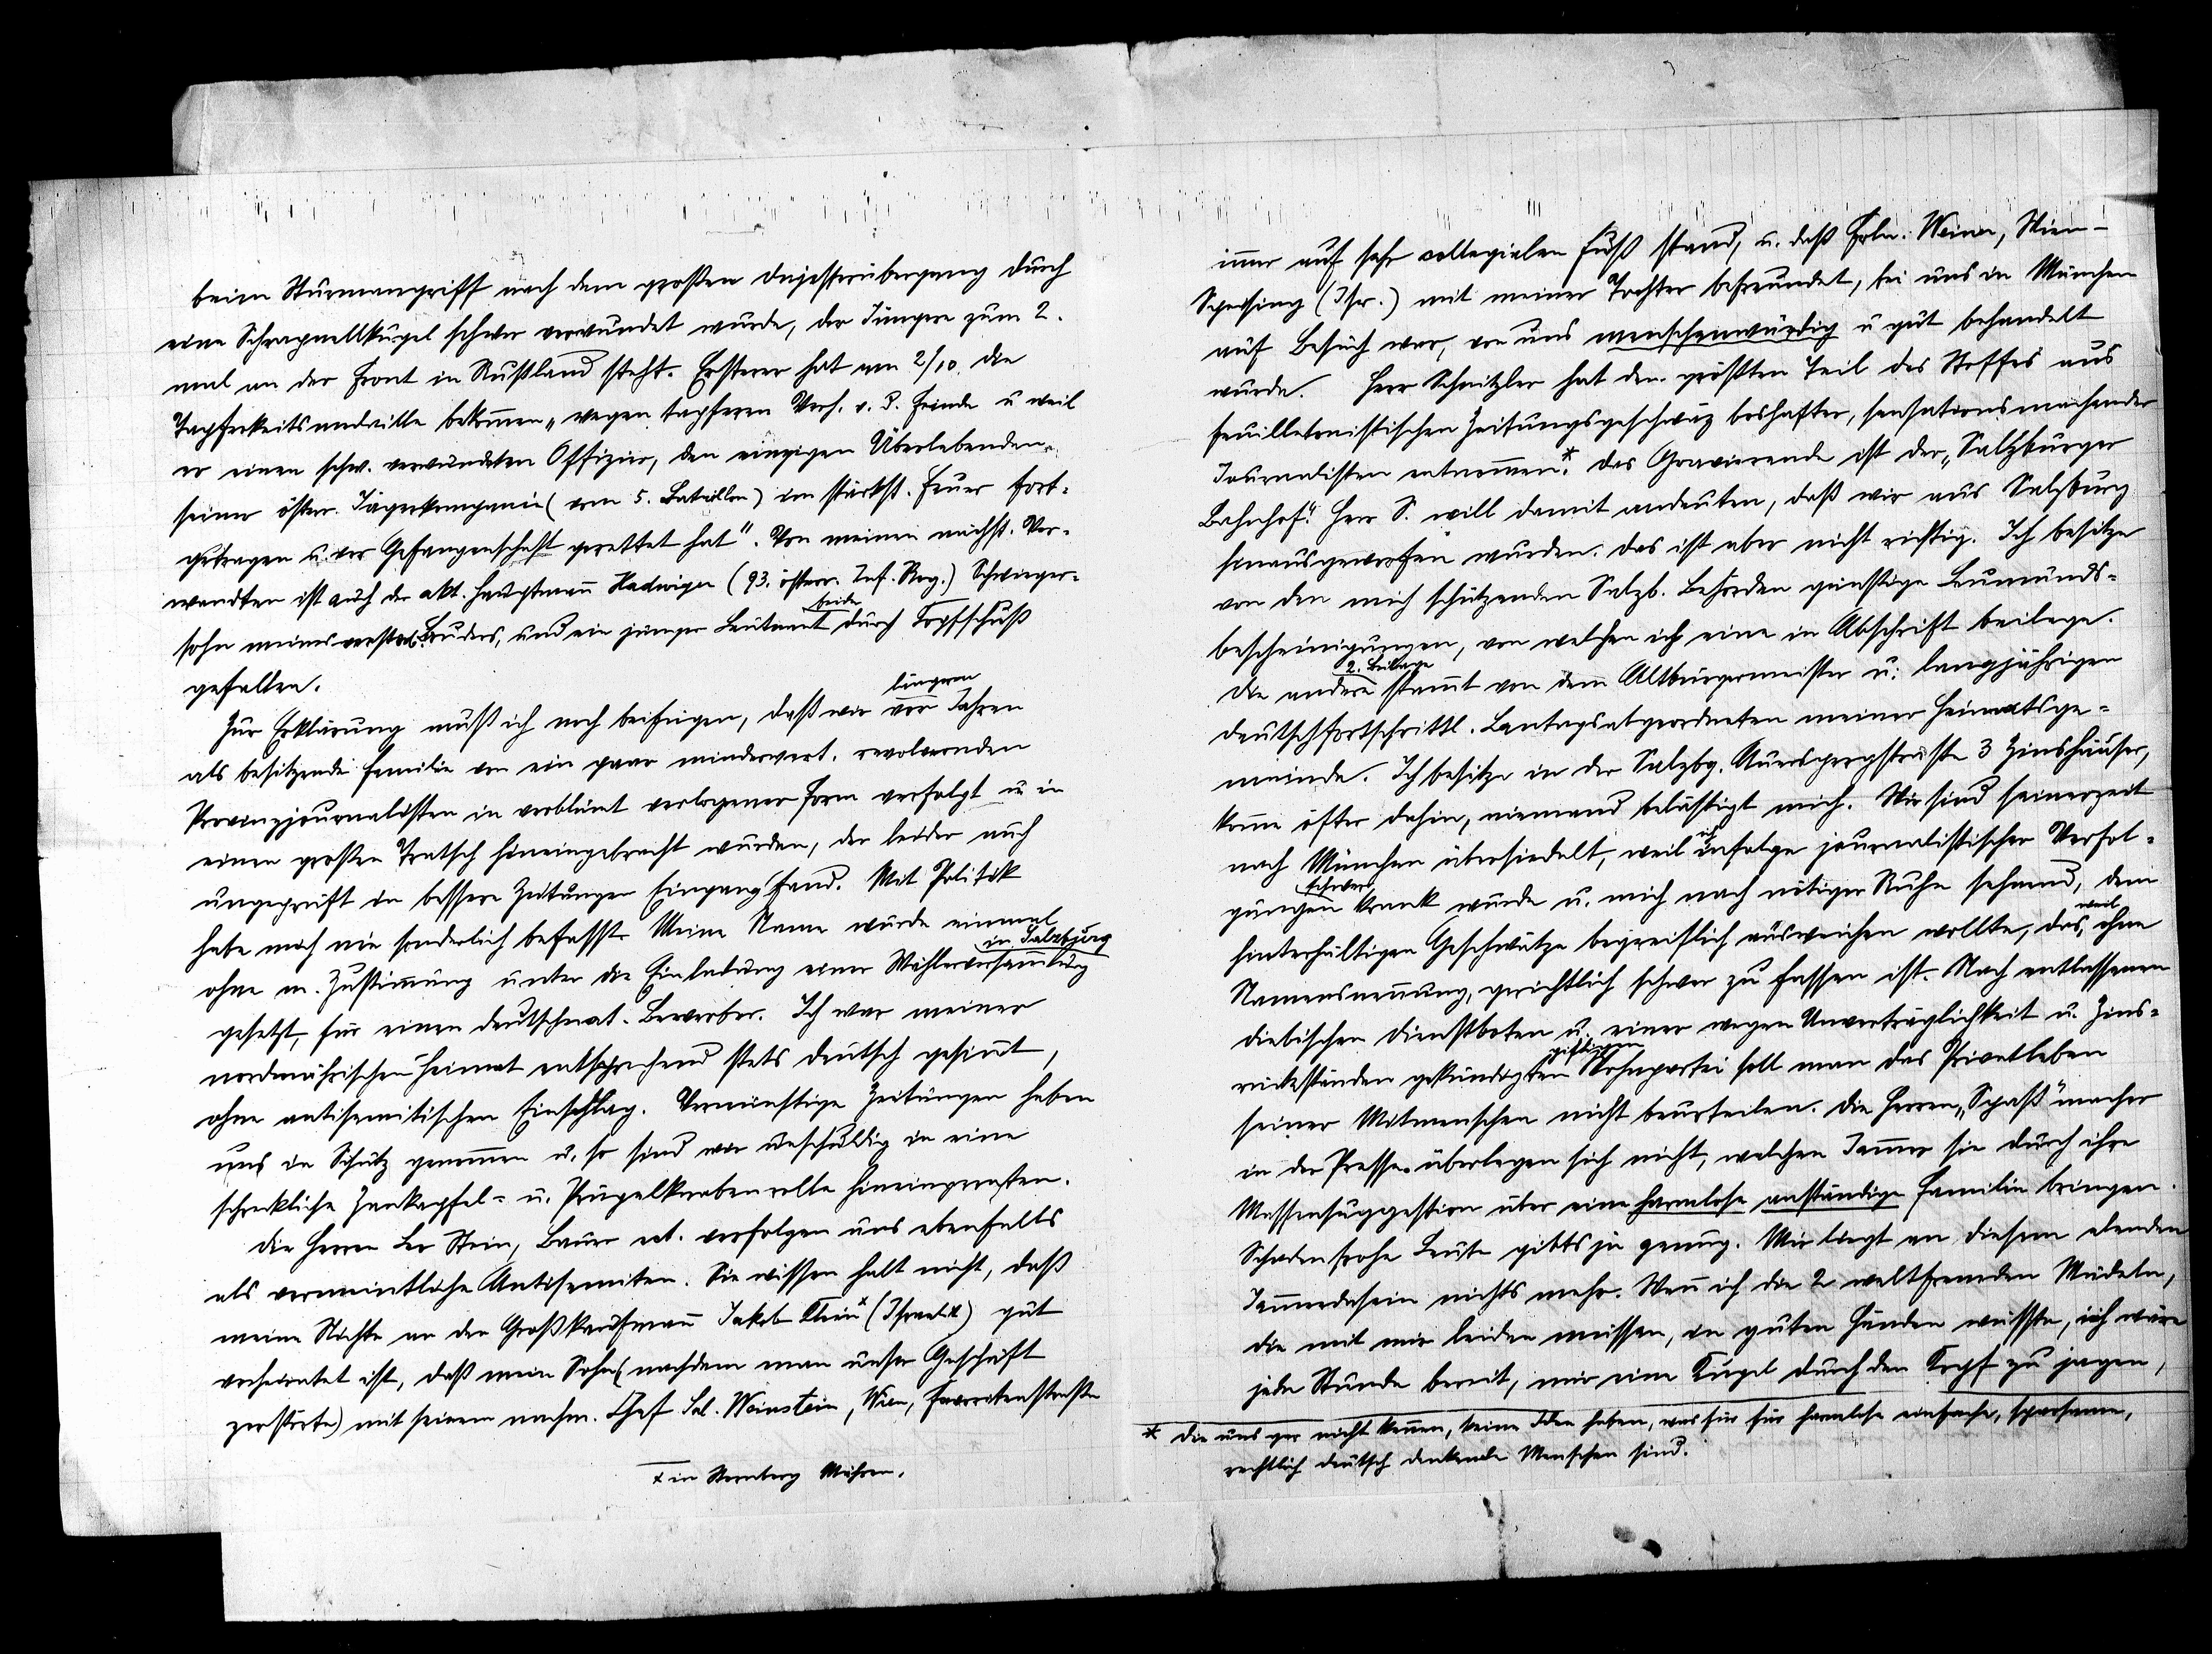 beim Sturmangriff nach dem großen Dnjesterübergang durch
eine Schrapnellkugel schwer verwundet wurde, der Jüngere zum 2.
mal an der Front in Rußland steht. Ersterer hat am 2/10. die
Tapferkeitsmedaille bekommen „wegen tapferen Verh. v. d. Feinde u weil
er einen schw. verwundeten Offizier, den einzigen Überlebenden
seiner österr. Jägerkompanie (vom 5. Bataillon) im stärkst. Feuer fort-
getragen u. vor Gefangenschaft gerettet hat". Von meinen nächst. Ver-
wandten ist auch der akt. Hauptmann Hadwiger (93. österr. Inf. Reg.) Schwieger-
sohn meines verstorb. Bruders, und ein junger Leutnant beide durch Kopfschuß
gefallen.
Zur Erklärung muß ich noch beifügen, daß wir vor längeren Jahren
als besitzende Familie von ein paar minderwert. revolvernden
Provinzjournalisten in verblümt verlogener Form verfolgt u in
einen großen Tratsch hineingebracht wurden, der leider auch
ungeprüft in bessere Zeitungen Eingang fand. Mit Politik
habe mich nie sonderlich befasst. Mein Name wurde einmal
ohne m. Zustimmung unter die Einladung einer Wählerversammlung in Salzburg
gesetzt, für einen deutschnat. Bewerber. Ich war meiner
nordmährischen Heimat entsprechend stets deutsch gesinnt,
ohne antisemitischen Einschlag. Vernünftige Zeitungen haben
uns in Schutz genommen u. so sind wir unschuldig in eine
schreckliche Zankapfel- u. Prügelknabenrolle hineingeraten.
Die Herren Leo Stein, Bauer ect. verfolgen uns ebenfalls
als vermeintliche Antisemiten. Sie wissen halt nicht, daß
meine Nichte an den Großkaufmann Jakob Klein x (Israelit) gut
verheiratet ist, daß mein Sohn (nachdem man unser Geschäft
zerstörte) mit seinem nachm. Chef Sal. Weinstein, Wien, Favoritenstraße
x in Sternberg Mähren.
immer auf sehr collegialen Fuß stand, u. daß Frln. Weiner, Wien-
Speising (Isr.) mit meiner Tochter befreundet, bei uns in München
auf Besuch war, von uns menschenwürdig u gut behandelt
wurde. Herr Schnitzler hat den größten Teil des Stoffes aus
feuilletonistischen Zeitungsgeschwäz boshafter, sensationsmachender
Journalisten entnommen.* Das Gravierende ist der „Salzburger
Bahnhof". Herr S. will damit andeuten, daß wir aus Salzburg
hinausgeworfen wurden. Das ist aber nicht richtig. Ich besitze
von den mich schützenden Salzb. Behörden günstige Leumunds-
bescheinigungen, von welchen ich eine in Abschrift beilege.
Die andere 2. Beilage stammt von dem Altbürgermeister u. langjährigen
deutschfortschrittl. Lantagsabgeordneten meiner Heimatsge-
meinde. Ich besitze in der Salzbg. Auerspergstraße 3 Zinshäuser,
komme öfter dahin, niemand belästigt mich. Wir sind seinerzeit
nach München übersiedelt, weil ich infolge journalistischer Verfol-
gungen schwer krank wurde u. mich nach nötiger Ruhe sehnend, dem
hinterhältigen Geschwätze begreiflich ausweichen wollte, das, weil ohne
Namensnennung, gerichtlich schwer zu fassen ist. Nach entlassenen
diebischen Dienstboten u. einer wegen Unverträglichkeit u. Zins-
rückständen gekündigten giftigen Wohnpartei soll man das Privatleben
seiner Mitmenschen nicht beurteilen. Die Herren „Spaß"macher
in der Presse überlegen sich nicht, welchen Jammer sie durch ihre
Massensuggestion über eine harmlose anständige Familie bringen.
Schadenfrohe Leute gibts ja genug. Mir liegt an diesem elenden
Jammerdasein nichts mehr. Wenn ich die 2 weltfremden Mädeln,
die mit mir leiden müssen, in guten Händen wüsste, ich wäre
jede Stunde bereit, mir eine Kugel durch den Kopf zu jagen,
* Die uns gar nicht kennen, keine Idee haben, was für für harmlose einfache, sparsame,
rechtlich deutsch denkende Menschen sind.